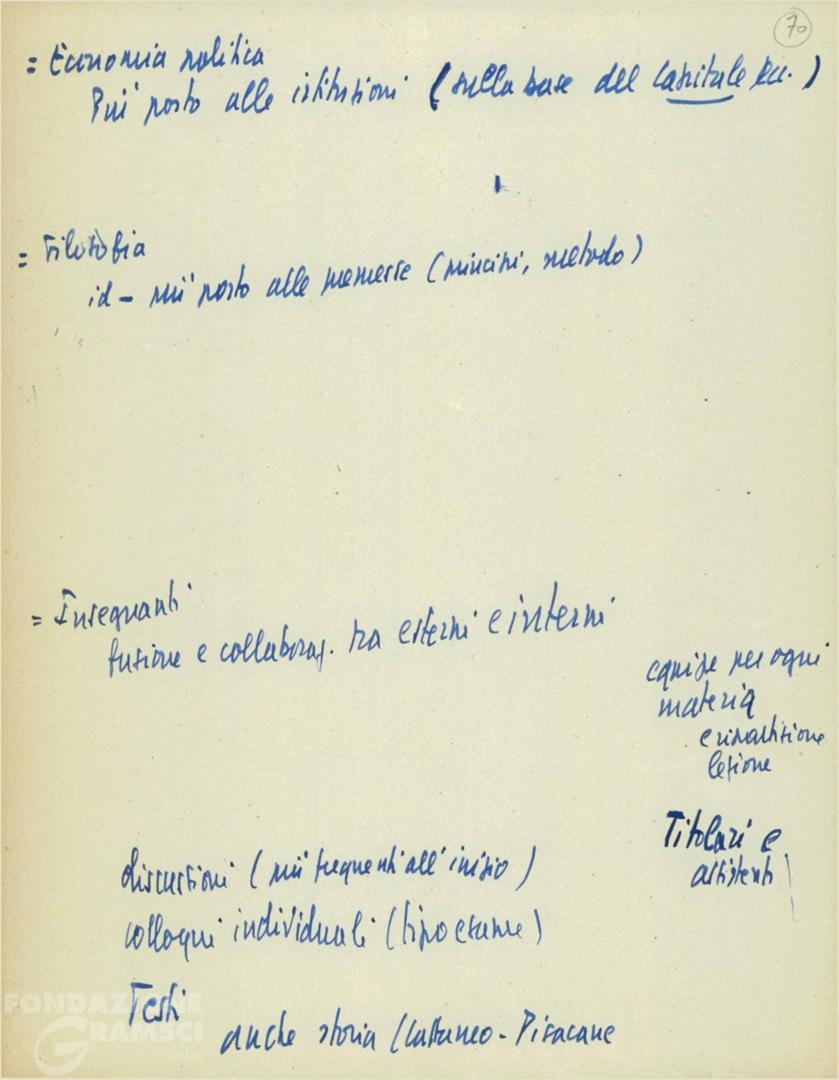 70
= Economia politica
Più posto alle istituzioni (sulla base del Capitale ecc.)
= Filosofia
id – più posto alle premesse (principi, metodo)
= Insegnanti
fusione e collaboraz. tra esterni e interni
equipe per ogni
materia
e ripartizione
lezione
Titolari e
assistenti
discussioni (più frequenti all'inizio)
colloqui individuali (tipo esame)
Testi
anche storia (Cattaneo - Pisacane
FONDAZIONE
GRAMSCI
onlus